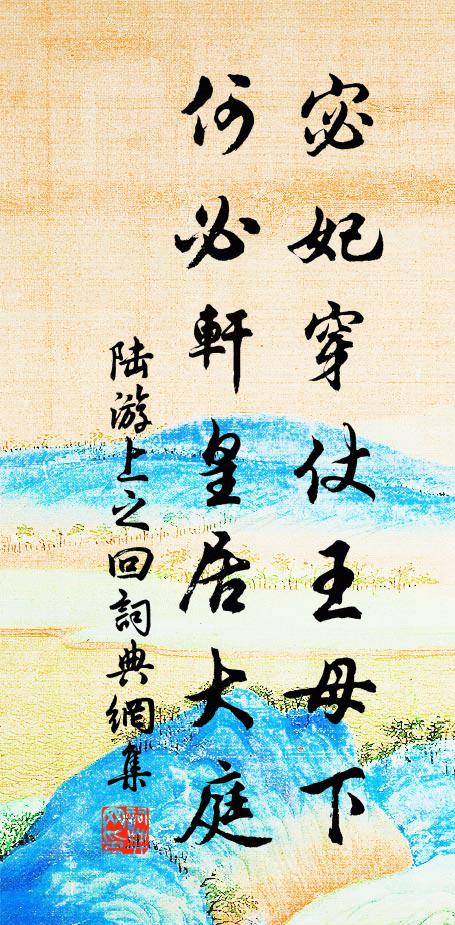 宓妃穿仗王母下
何必軒皇居大庭
陆游上之回詞典網集